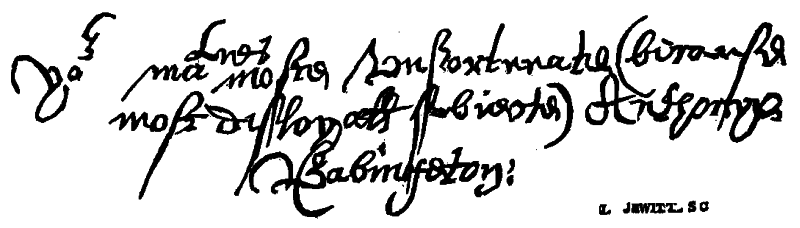 Yor matues moste unfortunate (because
most disloyall subiecte) Anthonye
Babington:
L JEWITT. SC